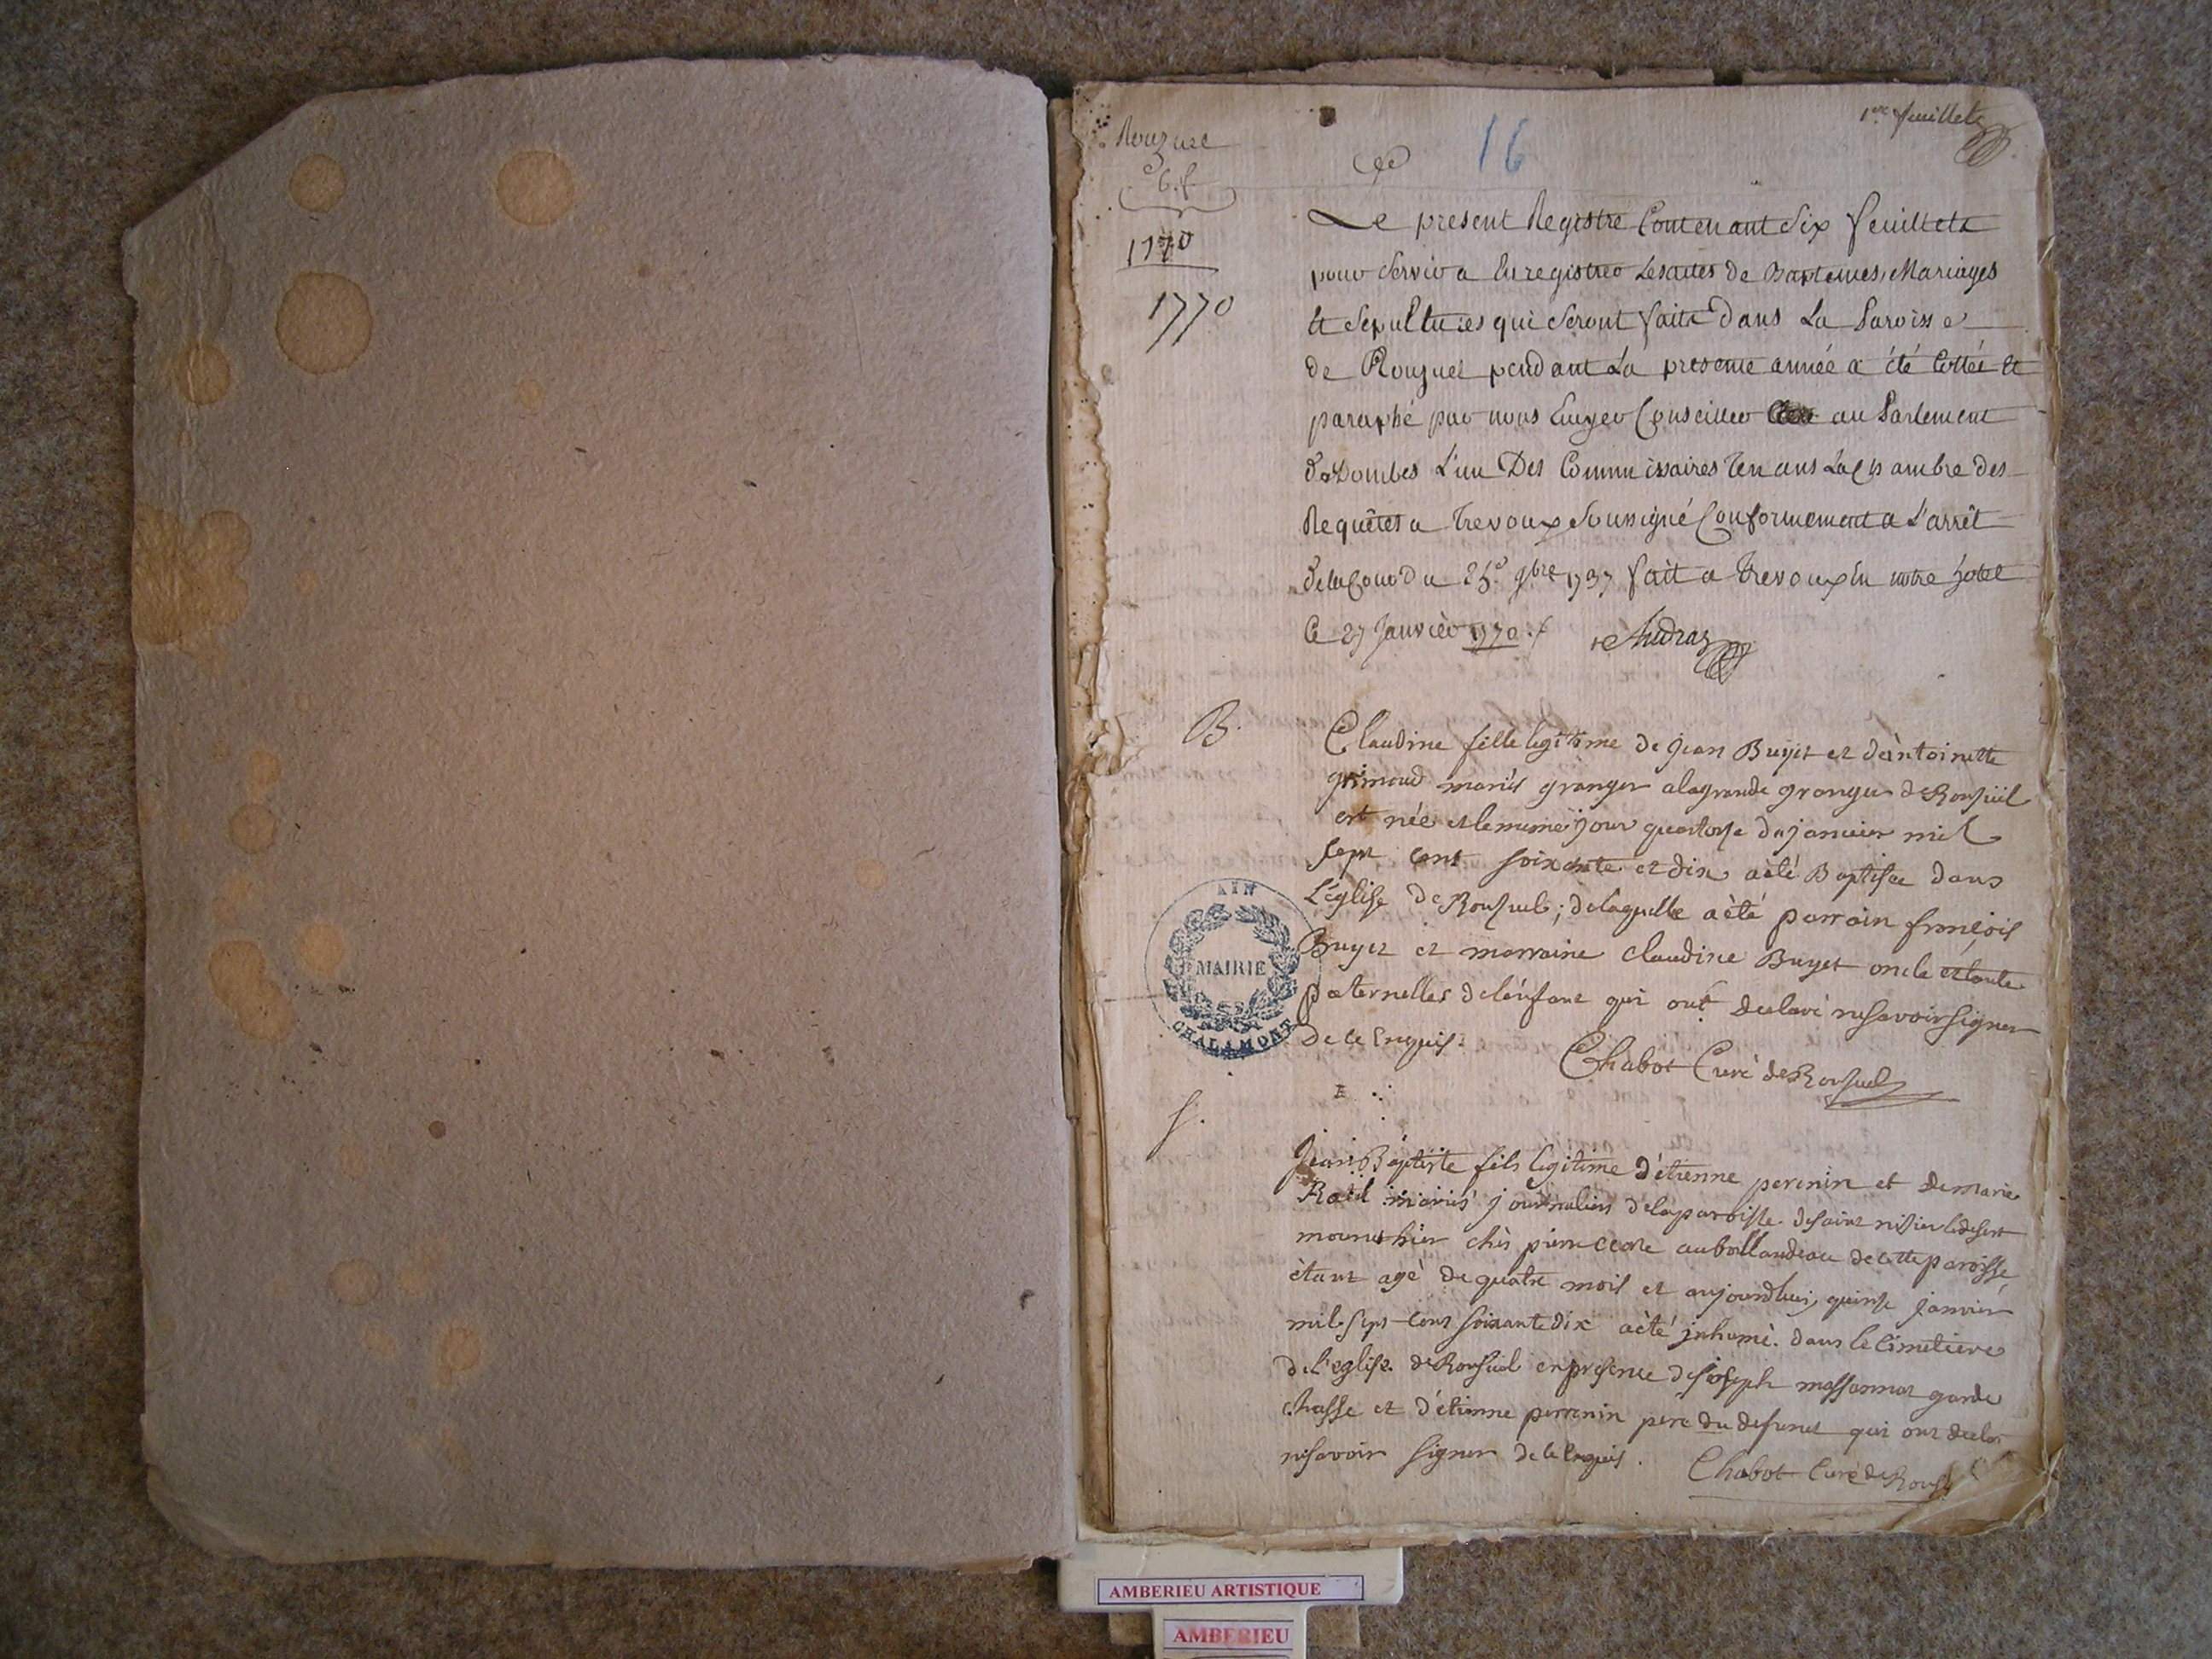 1ere feuillet
16
1770
1770
Le present Registre Contenant Six feuillets
pour Servir a Enregistrer Les actes de Baptemes, Mariages
Et Sepultures qui Seront faits Dans La Paroisse
de pendant La presente année a été Cottée Et
paraphé par nous Ecuyer Conseiller au Parlement
de Dombes L'un Des Commissaires Tenans La Chambre des
Requêtes a Trevoux Soussigné Conformement a L'arrêt
de la Cour Du 9bre 1737 fait a Trevoux En notre hotel
Ce 27 Janvier 1770 ./.
B.
Claudine fille legitime de jean Buyet et d'antoinette
grimaud mariés granger a la grande grange de Ronzüel
est née et le meme jour quatorze du janvier mil
sept cent soixante et dix a été Baptisee dans
L'église de Ronzuel ; de laquelle a été parrain françois
Buyet et marraine claudine Buyet oncle et tante
paternelles de l'enfant qui ont declaré ne savoir signer
de ce Enquis.
Chabot Curé de Ronzuel
AIN
MAIRIE
CHALAMONT
S.
Jean Baptiste fils legitime d'étienne perenin et de marie
mariés journaliers de la paroisse de saint nisier le desert
chés pierre au de cette paroisse
étant agé de quatre mois et aujourdhuy quinze janvier
mil sept cent soixante dix a été inhumé dans le cimetiere
de l'eglise de Ronzuel en presence de joseph massonnat garde
chasse et d'étienne perrenin pere du defunct qui ont declaré
ne savoir signer de ce Enquis.
Chabot Curé de
AMBERIEU ARTISTIQUE
AMBERIEU